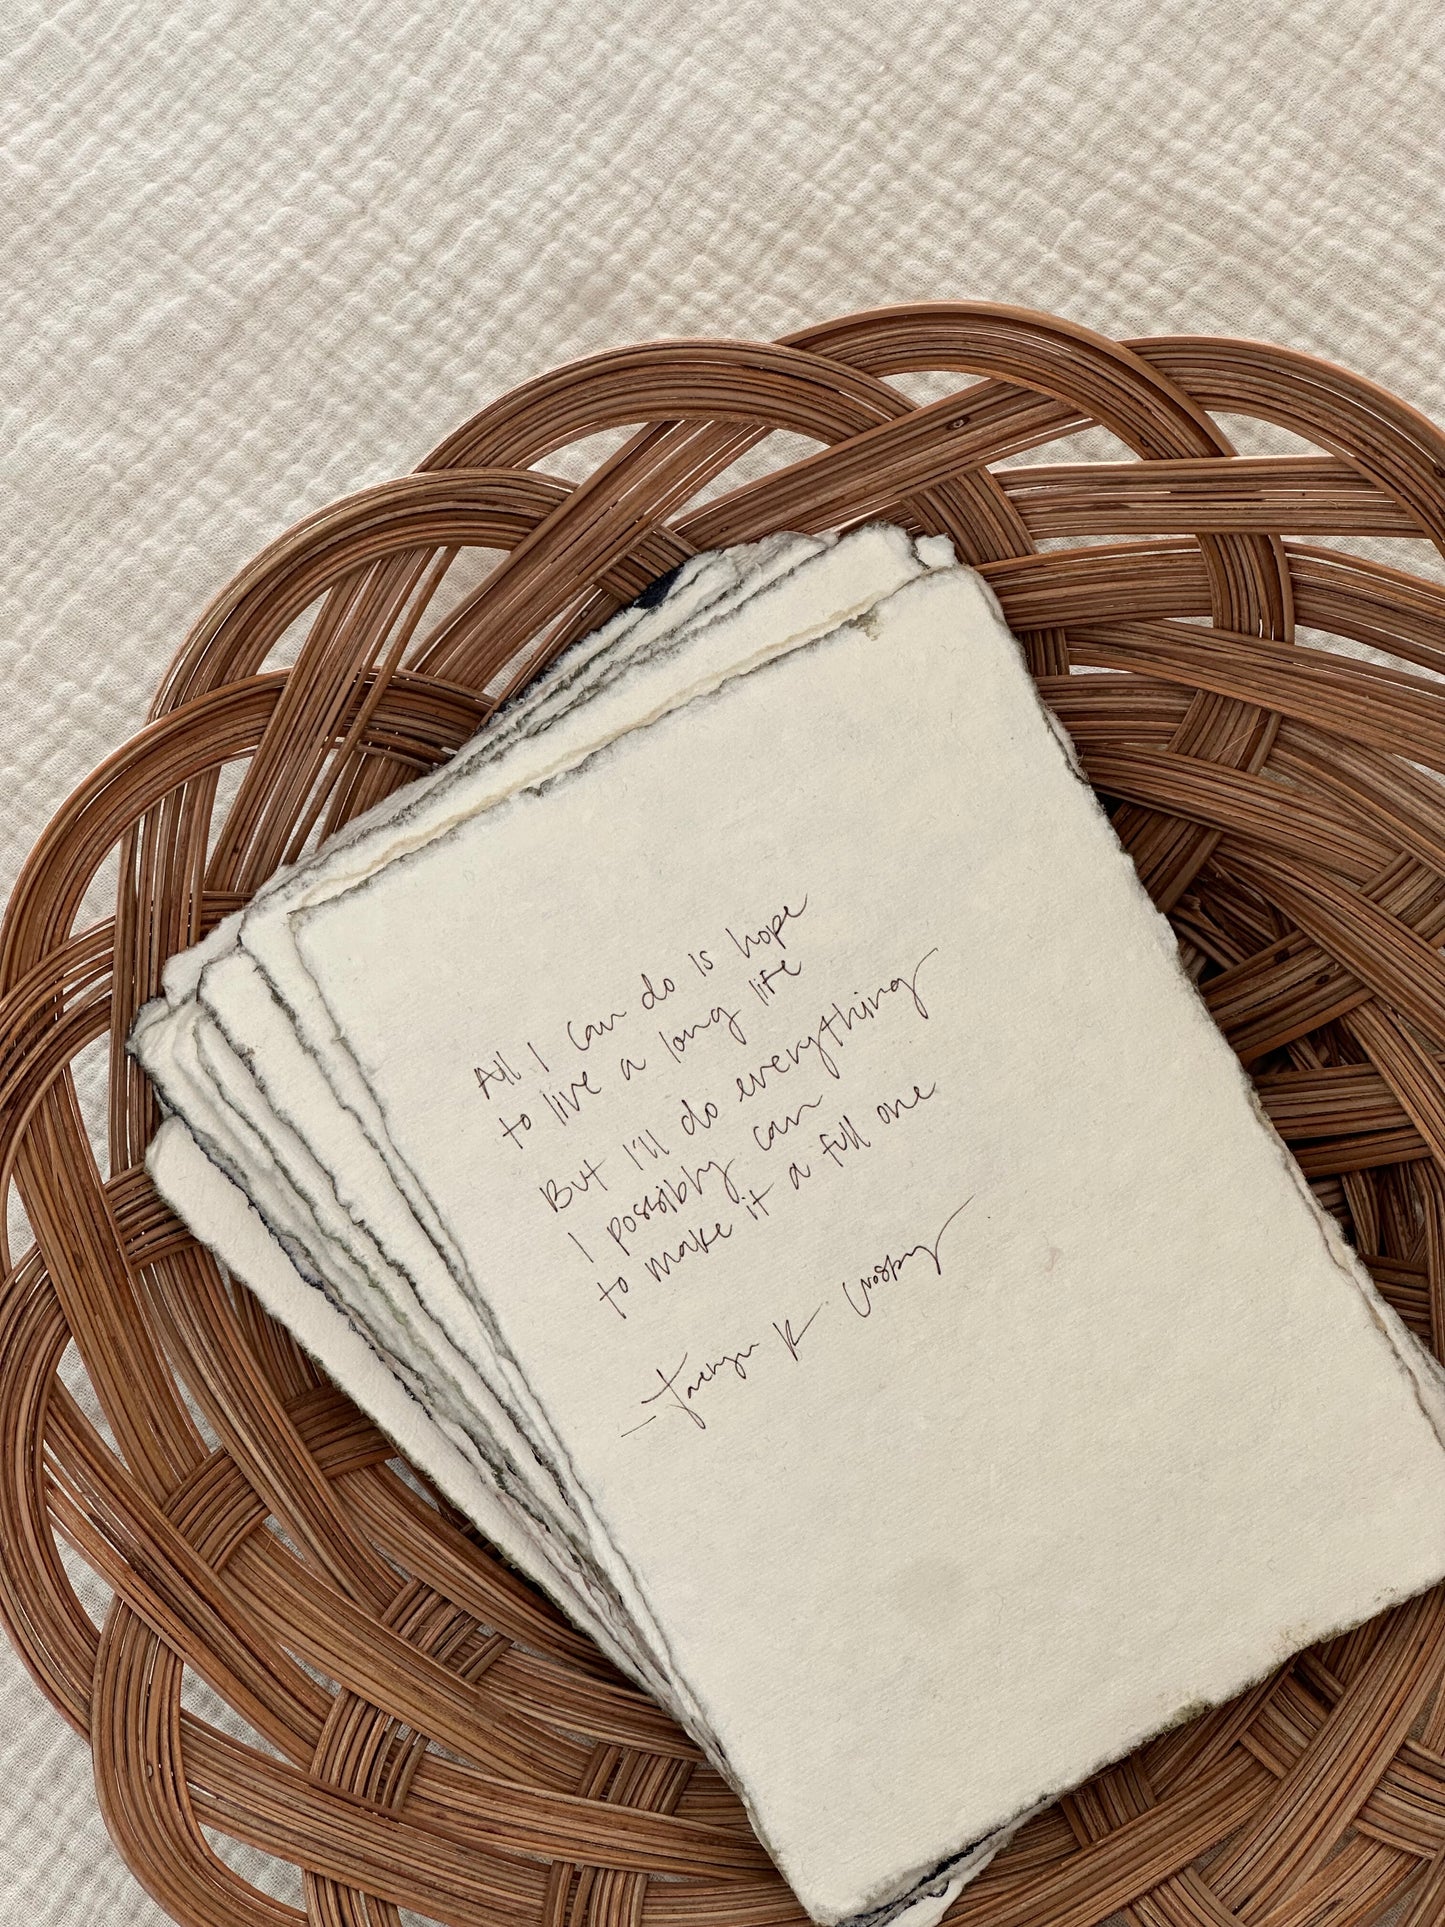 All I can do is hope
to live a long life
But I'll do everything
I possibly can
to make it a full one
- K. Crosby